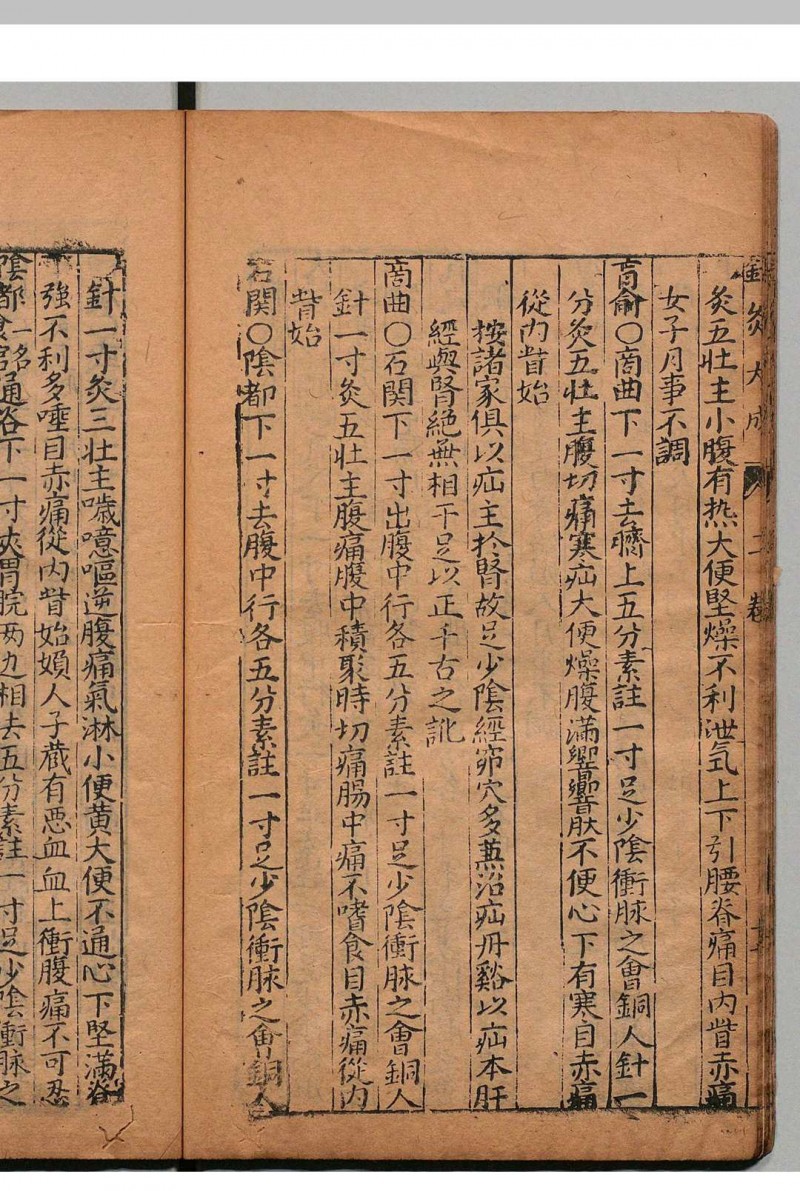 針灸大成 二卷
灸五壯主小腹有热大便堅燥不利泄气上下引腰脊痛目內眥赤痛
女子月事不調
肓俞○商曲下一寸去臍上五分素註一寸足少陰衝脉之會銅人針一
分灸五壯主腹切痛寒疝大便燥腹滿響響肰不便心下有寒目赤痛
從內眥始
按諸家俱以疝主於腎故足少陰經窌穴多兼治疝丹谿以疝本肝
經與腎絶無相干足以正千古之訛
商曲○石關下一寸出腹中行各五分素註一寸足少陰衝脉之會銅人
針一寸灸五壯主腹痛腹中積聚時切痛腸中痛不嗜食目赤痛從內
眥始
石關○陰都下一寸去腹中行各五分素註一寸足少陰衝脉之會銅人
針一寸灸三壯主噦噫嘔逆腹痛氣淋小便黄大便不通心下堅滿脊
強不利多唾目赤痛從內眥始婦人子藏有惡血血上衝腹痛不可忍
陰都一名食宮通谷下一寸夾胃脘两边相去五分素註一寸足少陰衝脉之